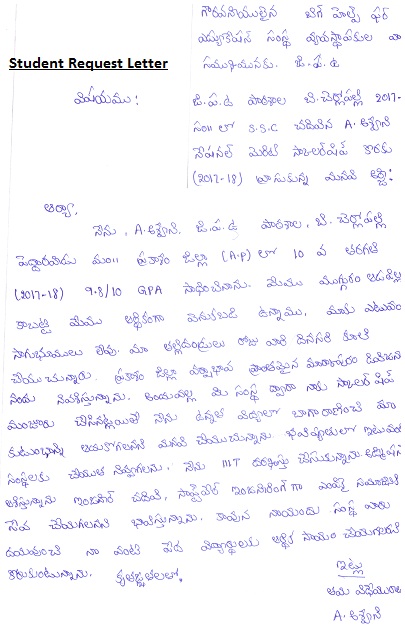 గౌరవనీయులైన బిగ్ హెల్ప్ ఫర్
ఎడ్యుకేషన్ సంస్థ వ్యవస్థాపకుల వా
సముఖమునకు. జి.ప.ఉ
Student Request Letter
విషయము :
జి.ప.ఉ పాఠశాల బి.చెర్లోపల్లి 2017-
సం॥ లో S.S.C చదివిన A. అశ్విని
నేషనల్ మెరిట్ స్కాలర్‌షిప్ కొరకు
(2017-18) వ్రాసుకున్న మనవి అర్జీ:
ఆర్యా,
నేను, A. అశ్విని. జి.ప.ఉ పాఠశాల, బి. చెర్లోపల్లి
పెద్దారవీడు మం॥ ప్రకాశం జిల్లా (A.P) లో 10 వ తరగతి
(2017-18) 9.8/10 GPA సాధించినాను. మేము ముగ్గురం ఆడపిల్లల
కాబట్టి మేము ఆర్థికంగా వెనుకబడి ఉన్నాము, మాకు ఎటువంటి
సాగుభూములు లేవు. మా తల్లిదండ్రులు రోజు వారి దినసరి కూలి
చేయుచున్నారు. ప్రకాశం జిల్లా వర్షాభావ ప్రాంతమైన మార్కాపురం డివిజన్
నందు నివశిస్తున్నాను. అందువల్ల మీ సంస్థ ద్వారా నాకు స్కాలర్ షిప్
మంజూరు చేసినట్లయితే నేను ఉన్నత విద్యలో బాగా రాణించి మా
కుటుంబాన్ని ఆదుకోగలనని మనవి చేయుచున్నాను. భవిష్యత్తులో ఇటువంటి
సంస్థలకు చేయూత నివ్వగలను. నేను IIIT దరఖాస్తు చేసుకున్నాను.
ఆశిస్తున్నాను ఇంజనీర్ చదివి, సాఫ్ట్‌వేర్ ఇంజనీరింగ్ గా సమాజానికి
సేవ చేయగలనని భావిస్తున్నాను. కావున నాయందు సంస్థ వారు
దయవుంచి నా వంటి పేద విద్యార్థులకు ఆర్థిక సాయం చేయగలరని
కోరుకుంటున్నాను. కృతజ్ఞతలతో.
ఇట్లు
తమ విధేయురాలు
A. అశ్విని